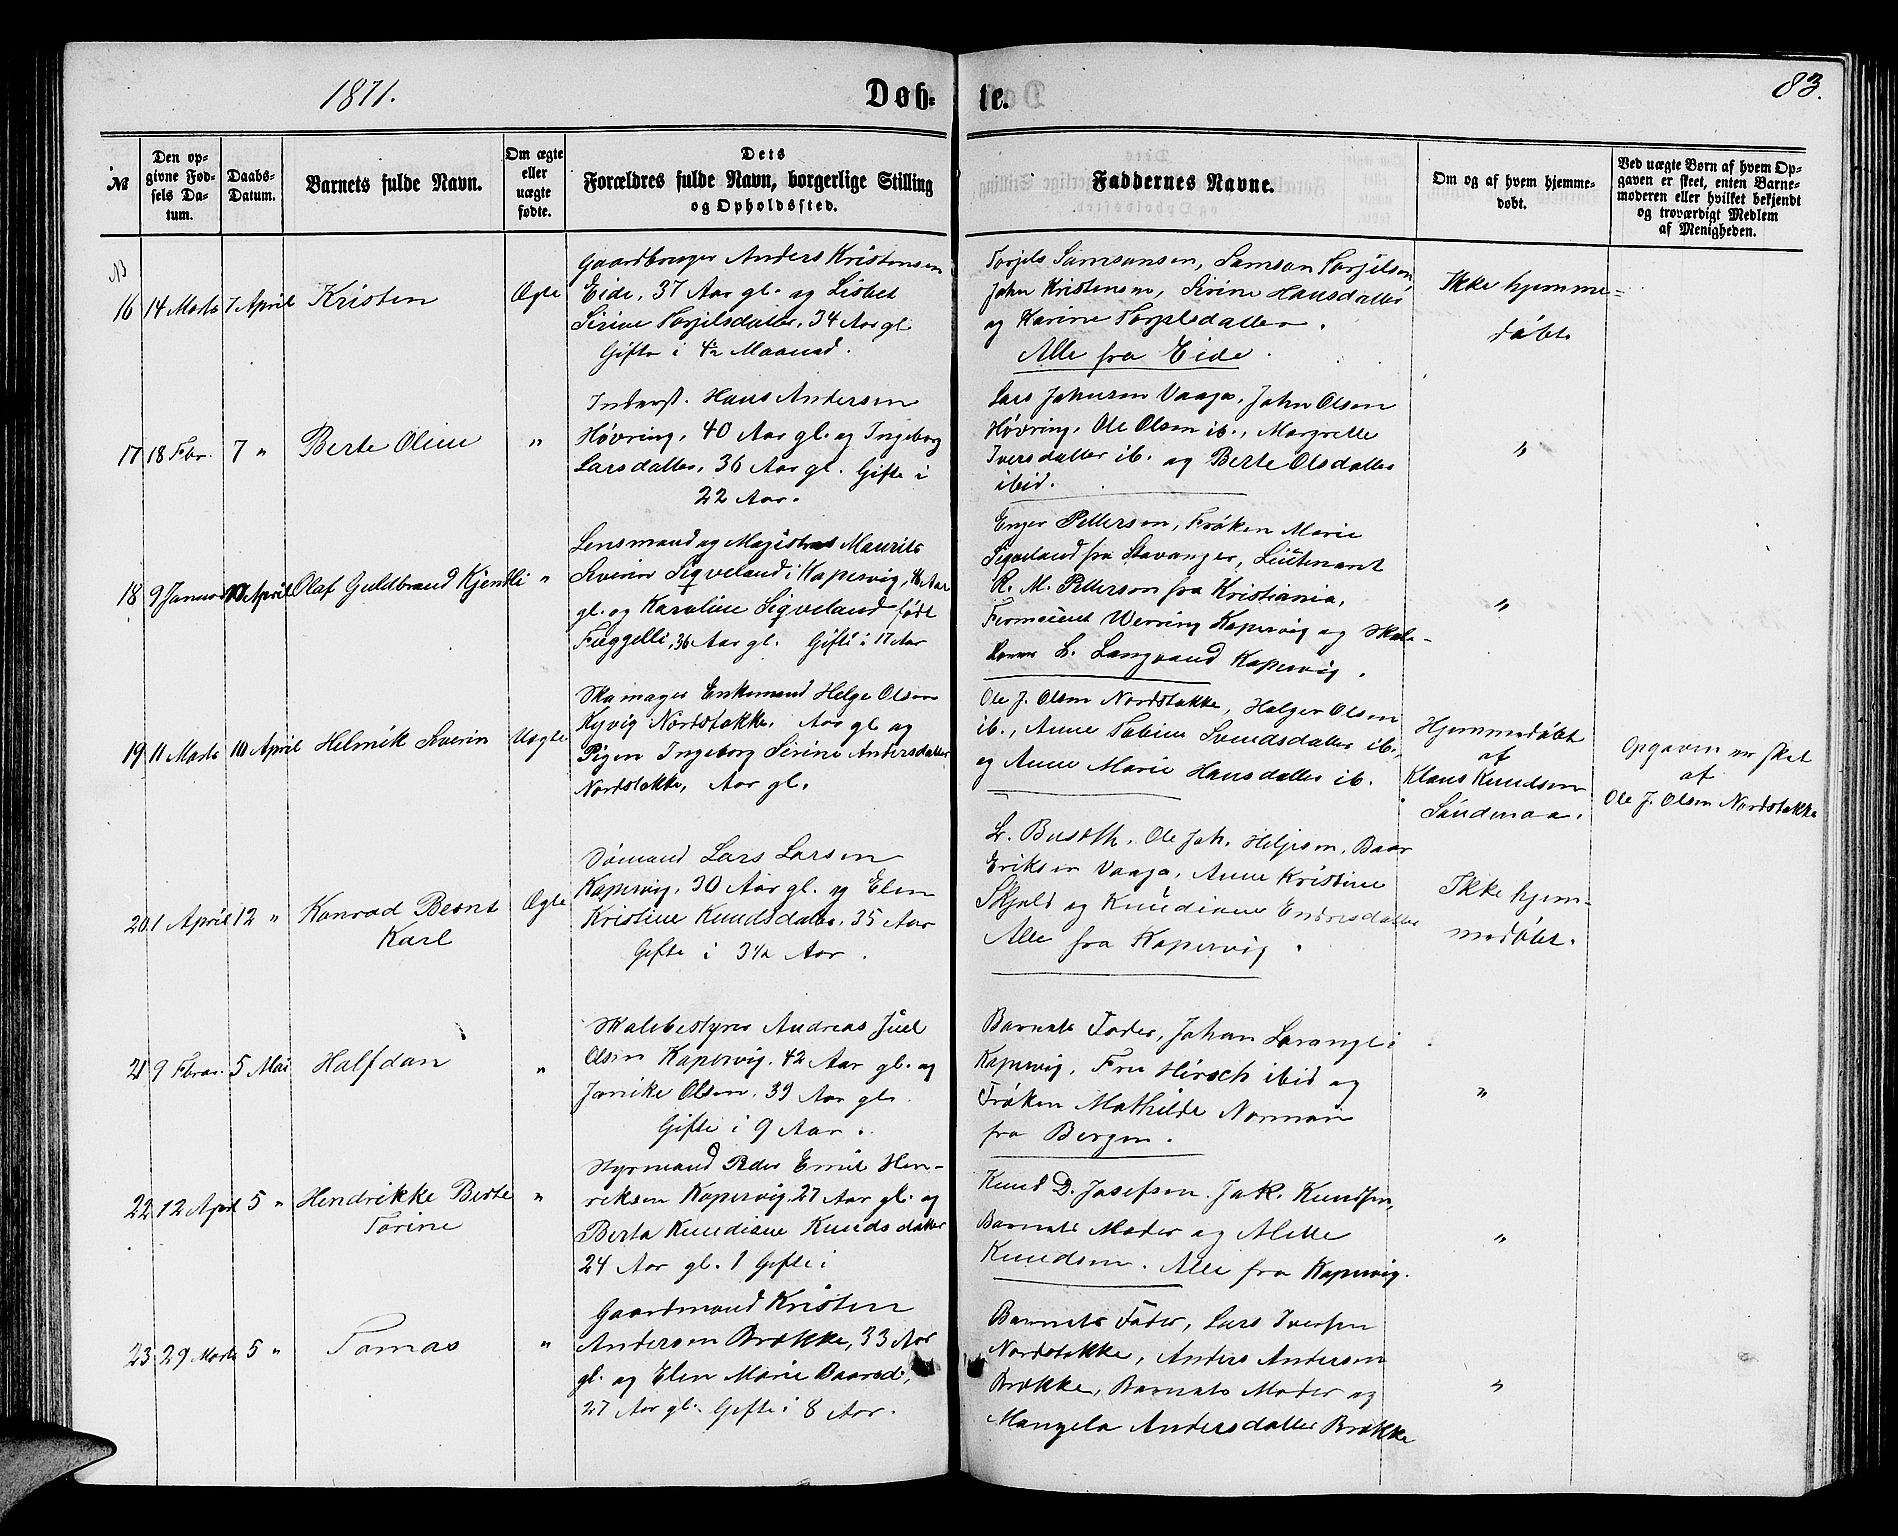 1871.
Døb-
te.
83.
№
Den op-
givne Fød-
sels Da-
tum.
Daabs-
Datum.
Barnets fulde Navn.
Om ægte
eller
uægte
fødte.
Dets
Forældres fulde Navn, borgerlige Stilling
og Opholdssted.
Faddernes Navne.
Om og af hvem hjemme-
døbt.
Ved uægte Børn af hvem Op-
gaven er skeet, enten Barne-
moderen eller hvilket bekjendt
og troværdigt Medlem
af Menigheden.
16
14 Marts
7 April
Kristen
Ægte
Gaardbruger Anders Kristensen
Eide, 37 Aar gl. og Lisbet
Sirine Torjilsdatter, 34 Aar gl
Gifte i 4½ Maaned.
Torjils Samsonsen, Samson Torjilsen,
John Kristensen, Sirine Hansdatter
og Karine Torjilsdatter.
Alle fra Eide.
Ikke hjemme=
døbt
17
18 Fbr.
7 "
Berte Oline
"
Inderst. Hans Andersen
Høvring, 40 Aar gl. og Ingeborg
Larsdatter, 36 Aar gl. Gifte i
22 Aar.
Lars Johnsen Vaage, John Olsen
Høvring, Ole Olsen ib., Margrette
Iversdatter ib. og Berte Olsdatter
ibid.
"
18
9 Januar
10 April
Olaf Guldbrand Kjendli
"
Lensmand og Magistrat Maurits
Severin Sigveland i Kapervig, 46 Aar
gl. og Karoline Sigveland født
36 Aar gl. Gifte i 17 Aar
Enger Pettersen, Frøken Marie
Sigveland fra Stavanger, Liutenant
R. M. Pettersen fra Kristiania,
Werring Kapervig og Skole-
L. Langaand Kapervig.
"
19
11 Marts
10 April
Helmik Severin
Uægte
Skomager Enkemand Helge Olsen
Kyvig Nordstokke. Aar gl og
Pigen Ingeborg Serine Andersdatter
Nordstokke, Aar gl.
Ole J. Olsen Nordstokke, Holger Olsen
ib., Anne Tobine Svendsdatter ib.,
og Anne Marie Hansdatter ib.
Hjemmedøbt
af
Klaus Knudsen
Sandmaa.
Opgaven er sket
af
Ole J. Olsen Nordstokke
20
1 April
12 "
Konrad Bernt
Karl
Ægte
Sømand Lars Larsen
Kapervig, 30 Aar gl. og Elen
Kristine Knudsdatter, 35 Aar
Gifte i 3½ Aar.
L. Busóth, Ole Joh. Heljesen, Baar
Eriksen Vaage, Anne Kristine
Skjold og Knudiane Endresdatter
Alle fra Kapervig.
Ikke hjem-
medøbt.
21
9 Fbrar.
5 Mai
Halfdan
"
Skolebestyrer Andreas Juel
Olsen Kapervig, 42 Aar gl. og
Janike Olsen, 39 Aar gl.
Gifte i 9 Aar.
Barnets Fader, Johan Lorange i
Kapervig, Fru Hirsch ibid og
Frøken Mathilde Norman
fra Bergen.
"
22
12 April
5 "
Hendrikke Berte
Torine
"
Styrmand Peder Emil Hen-
riksen Kapervig, 27 Aar gl. og
Berta Knudiane Knudsdatter
24 Aar gl. 1 Gifte i
Knud D. Josefsen, Jak. Knudsen,
Barnets Moder og Alette
Knudsen. Alle fra Kapervig.
"
23
29 Marts
5 "
Tomas
"
Gaardmand Kristen
Andersen Brække, 33 Aar
gl. og Elen Marie Baarsd,
27 Aar gl. Gifte i 8 Aar.
Barnets Fader, Lars Iversen
Nordstokke, Anders Andersen
Brække, Barnets Moder og
Mangela Andersdatter Brække
"